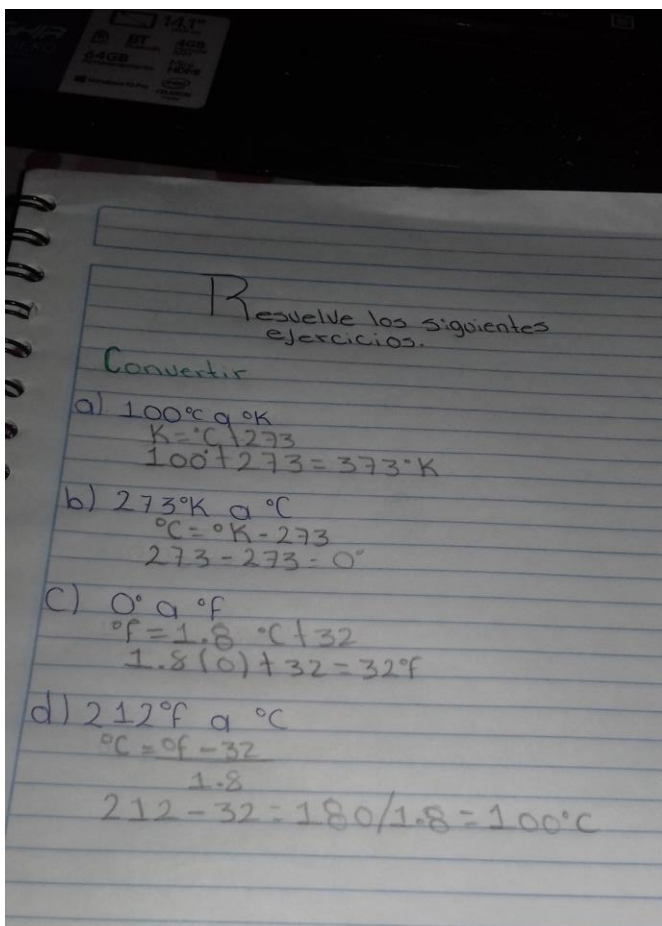 14.1"
BT
4GB
64GB
Resuelve los siguientes
ejercicios.
Convertir
a) 100°c a °K
K=°C+273
100°+273=373°K
b) 273°K a °C
°C=°K-273
273-273=0°
C) 0° a °f
°f=1.8 °C+32
1.8(0)+32=32°f
d) 212°f a °C
°C=°f-32
1.8
212-32=180/1.8=100°C